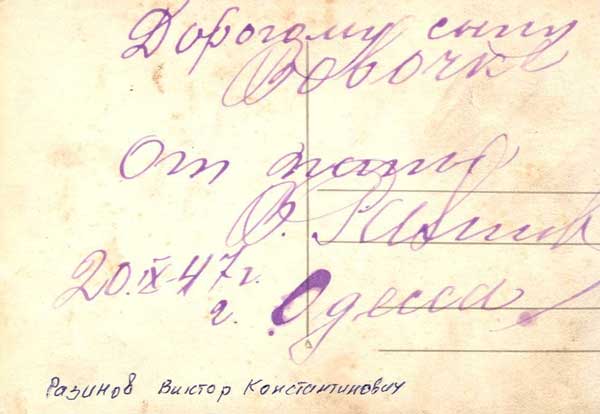 Дорогому сыну
Вовочке
От папы
В. Разинов
20.IX-47г.
г. Одесса.
Разинов Виктор Константинович